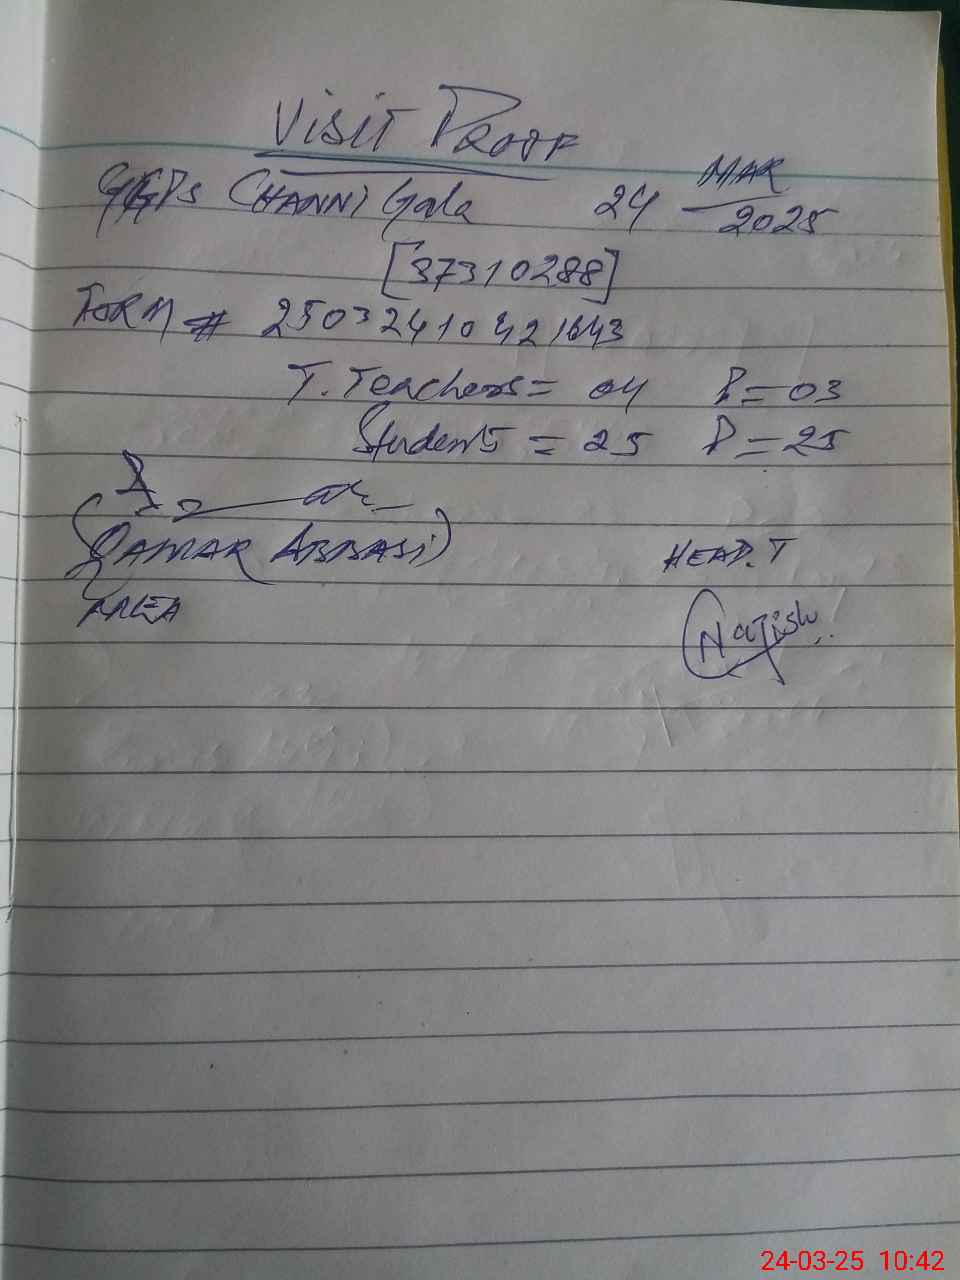 Visit Proof
GGPS CHANNI Gala 24 MAR 2025
[37310288]
FORM # 25032410421643
T. Teachers = 04 P = 03
Students = 25 P = 25
(QAMAR ABBASI) HEAD.T
AREA
24-03-25 10:42